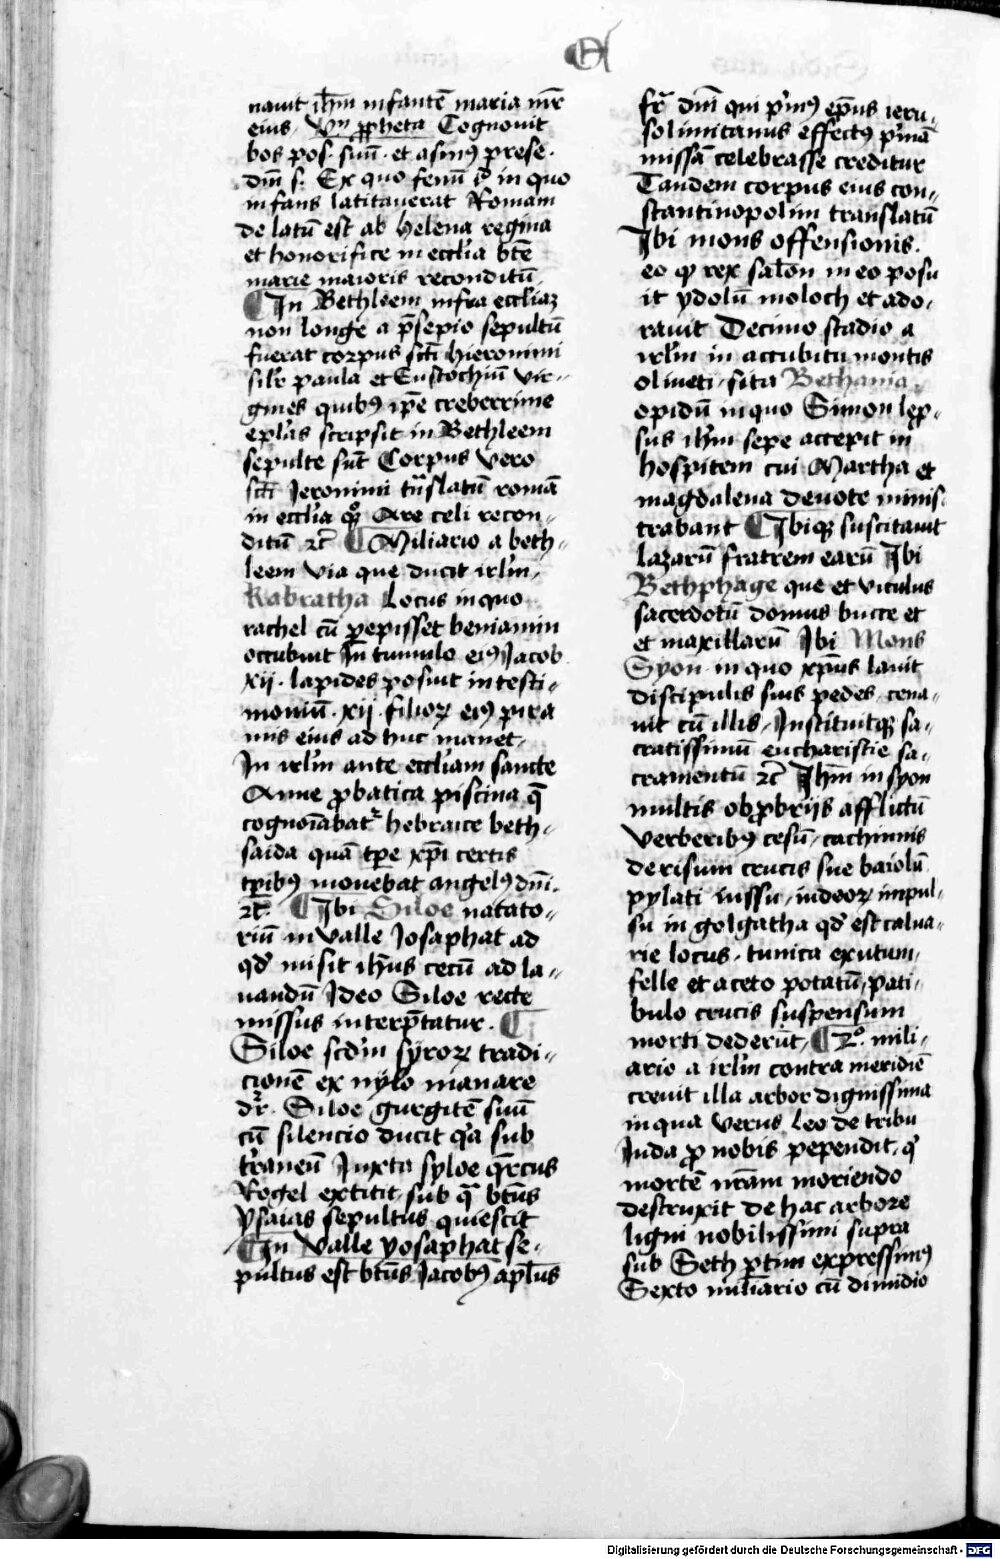 A
nauit ih̄m infantē maria mr̄
eius, vn̄ ꝓpheta Cognouit
bos pos. suū. et asinꝰ prese.
dm̄ s. Ex quo fenū in quo
infans latitauerat Romam
de latū est ab helena regina
et honorifice in eccl'ia bt̄e
marie maioris reconditū
In Bethleem infra eccl'iaz
non longe a p̄sepio sepultū
fuerat corpus sct̄i hieronimi
sil'r paula et Eustochiū vir-
gines quibꝰ ip̄e creberrime
ep'l'as scripsit in Bethleem
sepulte sūt Corpus vero
sct̄i Jeronimi trāslatū romā
in eccl'ia Are celi recon-
ditū ⁊c̄ Miliario a beth-
leem via que ducit irl'm,
Kabratha Locus in quo
rachel cū peꝑisset beniamin
occubuit In tumulo eiꝰ Jacob
xij. lapides posuit in testi-
moniū. xij. filioꝝ eiꝰ pira
mis eius ad huc manet,
In irl'm ante eccl'iam sancte
Anne ꝓbatica piscina q̄
cognoīabatᷣ hebraice beth-
saida quā tp̄e xp̄i certis
tp̄ibꝰ mouebat angelꝰ dn̄i.
⁊c̄. Ibi Siloe natato-
riū in valle Josaphat ad
qd' misit ih̄us cecū ad la-
uandū Ideo Siloe recte
missus interp̄tatur.
Siloe scd'm syroꝝ tradi-
cionē ex nylo manare
dr̄. Siloe gurgitē suū
cū silencio ducit q'a sub
t'raneū Juxta syloe q̄rcus
Rogel extitit, sub q̄ bt̄us
ysaias sepultus quiescit
In valle yosaphat se-
pultus est bt̄us Jacobꝰ ap'l'us
fr̄ dm̄ qui p'mꝰ ep̄us ieru-
solimitanus effectꝰ p'mā
missā celebrasse creditur
Tandem corpus eius con-
stantinopolim translatū
Ibi mons offensionis.
eo ꝙ rex sal'on in eo posu
it ydolū moloch et ado-
rauit Decimo stadio a
irl'm in accubitu montis
oliueti, sita Bethania.
opidū in quo Simon lep̄-
sus ih'm sepe accepit in
hospitem cui Martha et
magdalena deuote minis-
trabant Ibiqꝫ suscitauit
lazarū fratrem earū Ibi
Bethphage que et viculus
sacerdotū domus bucce et
et maxillarū Ibi Mons
Syon. in quo xp̄us lauit
discipulis suis pedes, cena-
uit cū illis, Instituitqꝫ sa-
cratissimū eucharistie sa-
cramentū ⁊c̄ Ih̄m in syon
multis obꝓbrijs afflictū
verberibꝰ cesū, cachinnis
derisum crucis sue baiolū
pylati iussu, iudeoꝝ impul-
su in golgatha qd' est calua-
rie locus, tunica exutum,
felle et aceto potatū, pati-
bulo crucis suspensum
morti dederūt, 2o. mili-
ario a irl'm contra meridiē
creuit illa arbor dignissima
in qua verus leo de tribu
Juda ꝓ nobis pependit, q'
mortē nr̄am moriendo
destruxit de hac arbore
ligni nobilissimi supra
sub Seth ꝑtim expressimꝰ
Sexto miliario cū dimidio
Digitalisierung gefördert durch die Deutsche Forschungsgemeinschaft - DFG